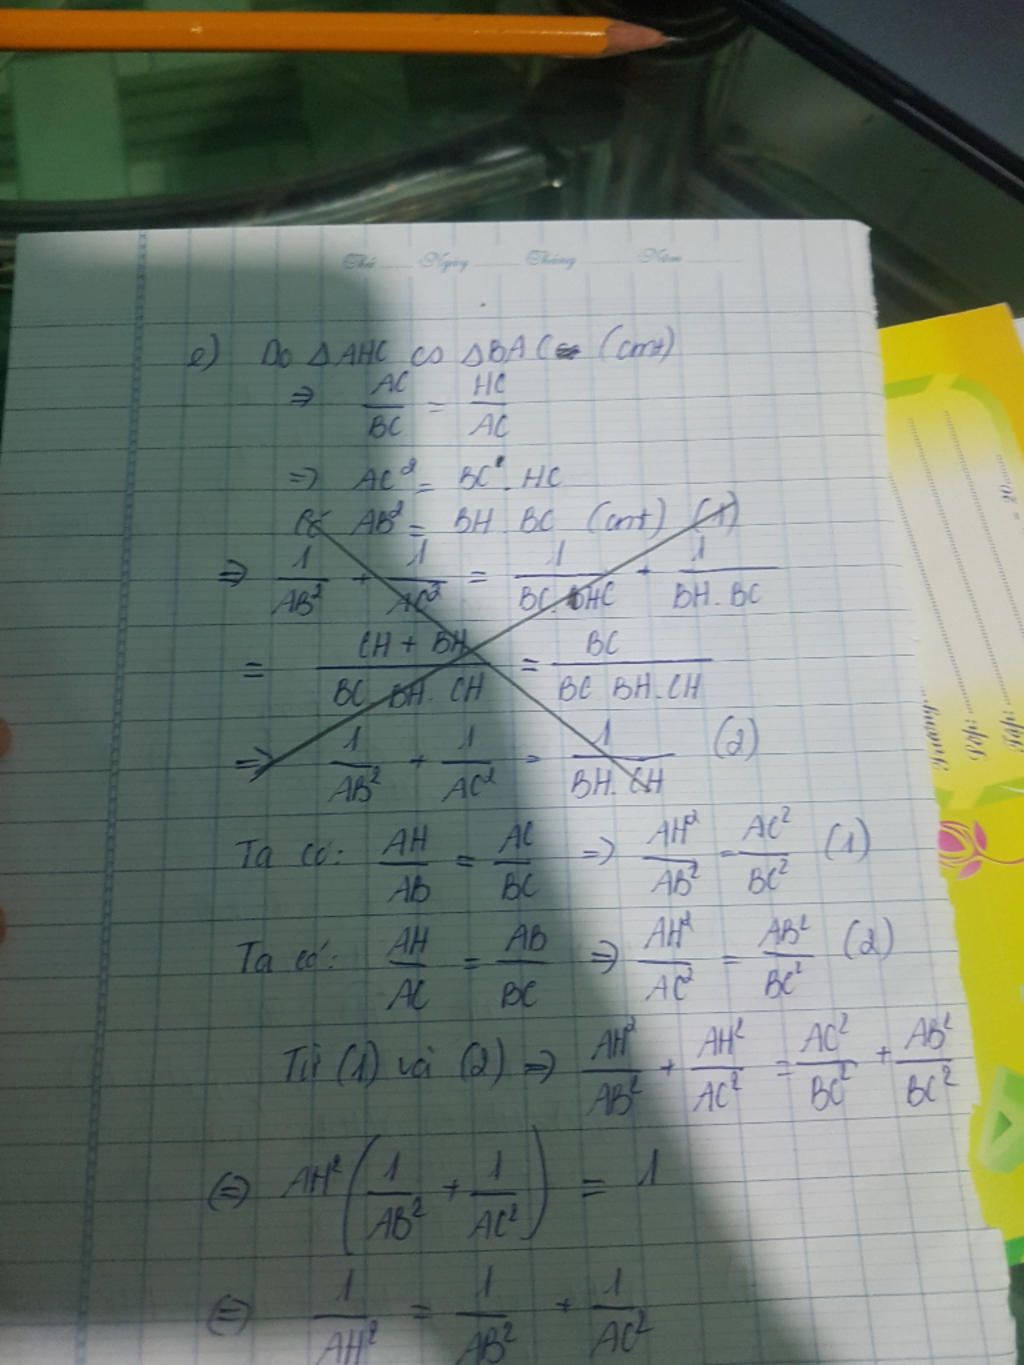 Thứ Ngày Tháng Năm
e) Do △AHC ∽ △BAC (cmt)
⇒ AC/BC = HC/AC
⇒ AC² = BC . HC
Có AB² = BH BC (cmt) (1)
⇒ 1/AB² + 1/AC² = 1/BC.HC + 1/BH.BC
= CH + BH/BC BH.CH = BC/BC BH.CH
⇒ 1/AB² + 1/AC² = 1/BH.CH (2)
Ta có: AH/AB = AC/BC ⇒ AH²/AB² = AC²/BC² (1)
Ta có: AH/AC = AB/BC ⇒ AH²/AC² = AB²/BC² (2)
Từ (1) và (2) ⇒ AH²/AB² + AH²/AC² = AC²/BC² + AB²/BC²
⇔ AH²(1/AB² + 1/AC²) = 1
⇔ 1/AH² = 1/AB² + 1/AC²
Trường
Lớp:
Tập:
20